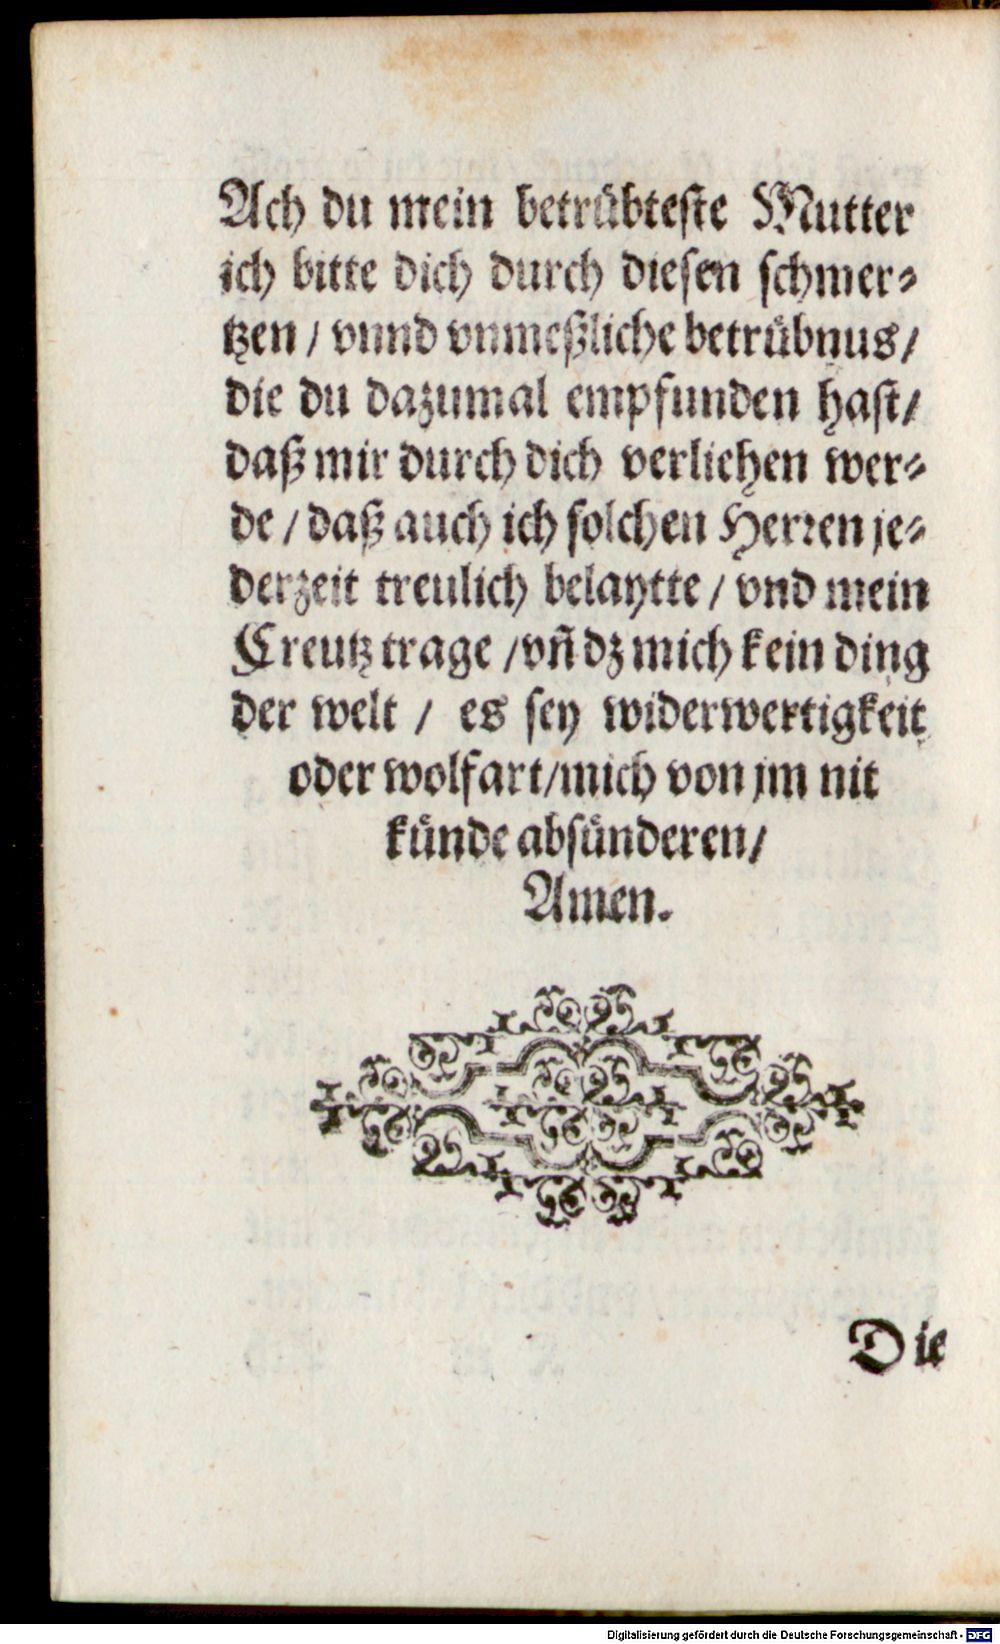 Ach du mein betrübteste Mutter
ich bitte dich durch diesen schmer⸗
tzen / vnnd vnmeßliche betrübnus /
die du dazumal empfunden hast /
daß mir durch dich verliehen wer⸗
de / daß auch ich solchen Herren je⸗
derzeit treulich belaytte / vnd mein
Creutz trage / vñ dz mich kein ding
der welt / es sey widerwertigkeit
oder wolfart / mich von jm nit
künde absünderen /
Amen.
Die
Digitalisierung gefördert durch die Deutsche Forschungsgemeinschaft - DFG